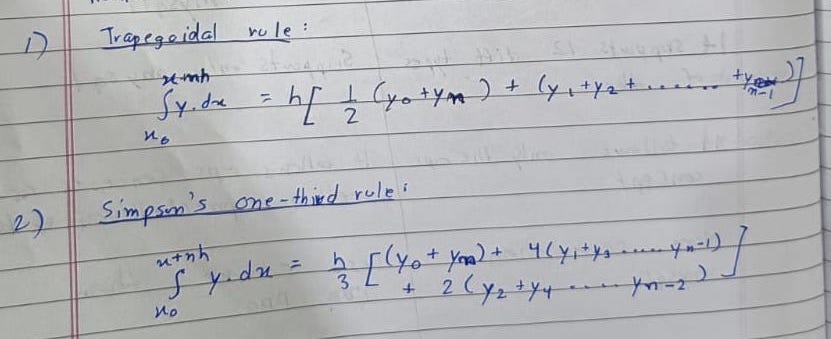 1) Trapegoidal rule :
x+nh
∫ y.dx = h[ 1/2 (y₀+yₙ) + (y₁+y₂+.......+yₙ₋₁)]
x₀
2) Simpson's one-third rule :
x+nh
∫ y.dx = h/3 [(y₀+yₙ) + 4(y₁+y₃.....yₙ₋₁)
+ 2(y₂+y₄ .... yₙ₋₂)]
x₀